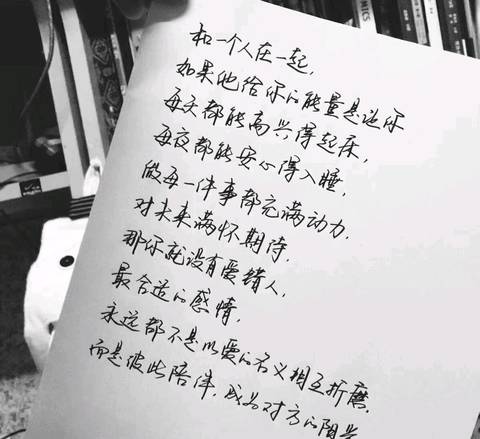 和一个人在一起,
如果他给你的能量是让你
每天都能高兴得起床,
每夜都能安心得入睡,
做每一件事都充满动力.
对未来满怀期待,
那你就没有爱错人,
最合适的感情,
永远都不是以爱的名义相互折磨,
而是彼此陪伴,成为对方的阳光